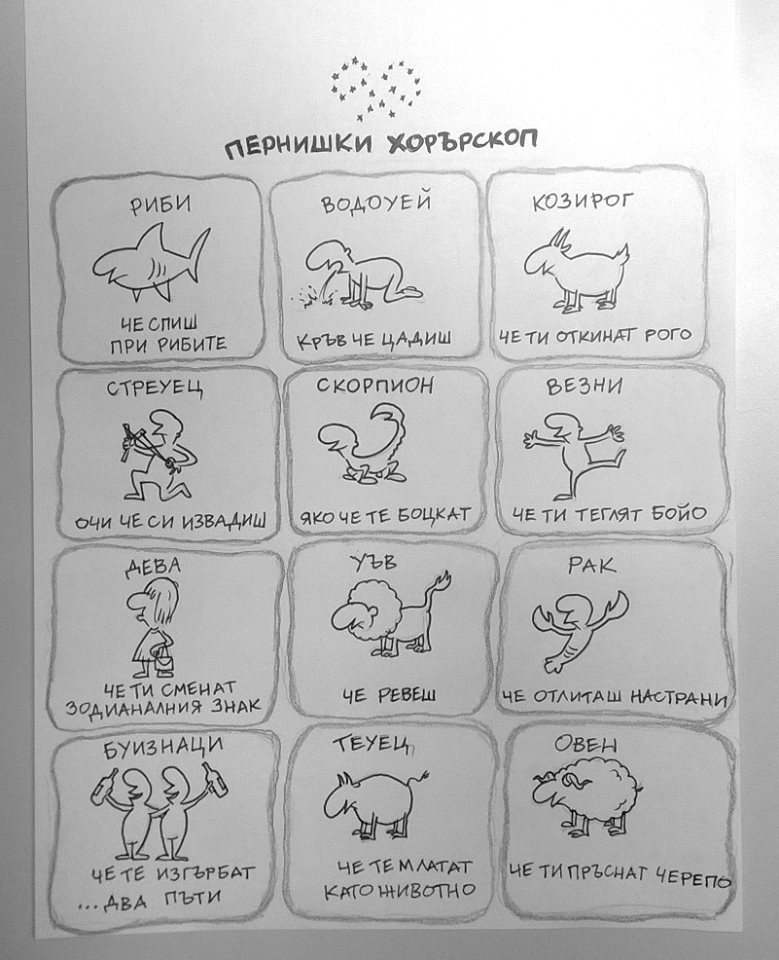 ПЕРНИШКИ ХОРЪРСКОП
РИБИ
ЧЕ СПИШ
ПРИ РИБИТЕ
ВОДОУЕЙ
КРЪВ ЧЕ ЦАДИШ
КОЗИРОГ
ЧЕ ТИ ОТКИНАТ РОГО
СТРЕУЕЦ
ОЧИ ЧЕ СИ ИЗВАДИШ
СКОРПИОН
ЯКО ЧЕ ТЕ БОЦКАТ
ВЕЗНИ
ЧЕ ТИ ТЕГЛЯТ БОЙО
ДЕВА
ЧЕ ТИ СМЕНАТ
ЗОДИАНАЛНИЯ ЗНАК
УЪВ
ЧЕ РЕВЕШ
РАК
ЧЕ ОТЛИТАШ НАСТРАНИ
БУИЗНАЦИ
ЧЕ ТЕ ИЗГЪРБАТ
...ДВА ПЪТИ
ТЕУЕЦ
ЧЕ ТЕ МЛАТАТ
КАТО ЖИВОТНО
ОВЕН
ЧЕ ТИ ПРЪСНАТ ЧЕРЕПО